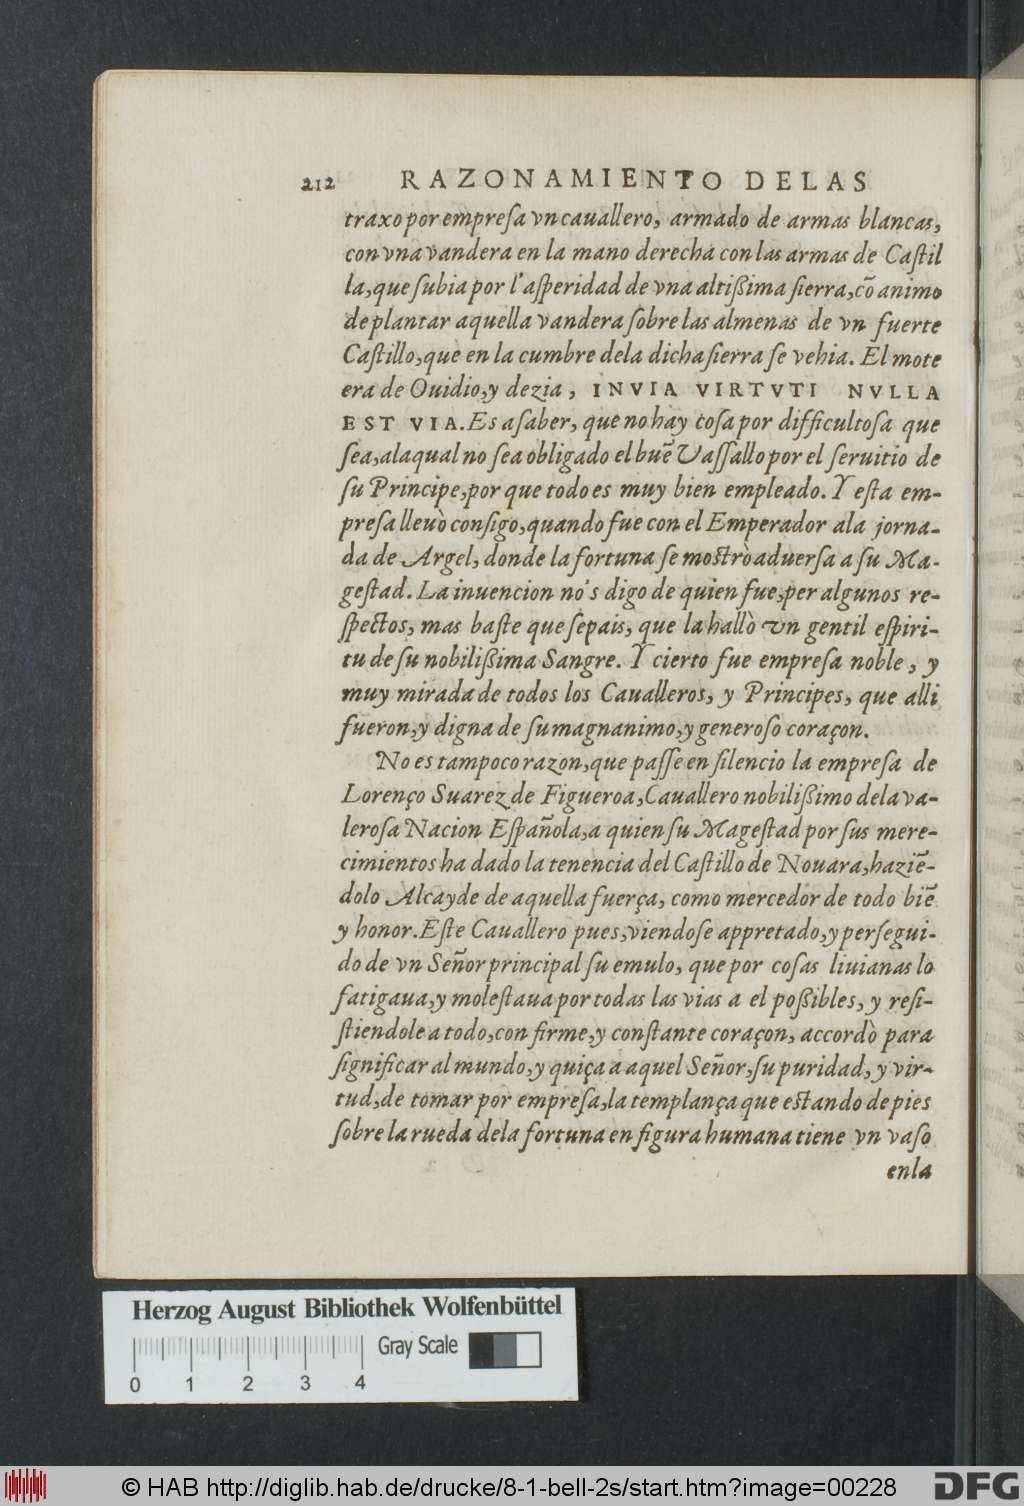 212 RAZONAMIENTO DELAS
traxo por empreſa vn cauallero, armado de armas blancas,
con vna vandera en la mano derecha con las armas de Caſtil
la, que ſubia por l'aſperidad de vna altißima ſierra, cõ animo
de plantar aquella vandera ſobre las almenas de vn fuerte
Caſtillo, que en la cumbre dela dicha ſierra ſe vehia. El mote
era de Ouidio, y dezia, INVIA VIRTVTI NVLLA
EST VIA. Es a ſaber, que no hay coſa por difficultoſa que
ſea, ala qual no ſea obligado el buẽ Vaſſallo por el ſeruitio de
ſu Principe, por que todo es muy bien empleado. Y eſta em-
preſa lleuò conſigo, quando fue con el Emperador ala jorna-
da de Argel, donde la fortuna ſe moſtrò aduerſa a ſu Ma-
geſtad. La inuencion no's digo de quien fue, per algunos re-
ſpectos, mas baſte que ſepais, que la hallò vn gentil eſpiri-
tu de ſu nobilißima Sangre. Y cierto fue empreſa noble, y
muy mirada de todos los Caualleros, y Principes, que alli
fueron, y digna de ſu magnanimo, y generoſo coraçon.
No es tampoco razon, que paſſe en ſilencio la empreſa de
Lorenço Suarez de Figueroa, Cauallero nobilißimo dela va-
leroſa Nacion Eſpañola, a quien ſu Mageſtad por ſus mere-
cimientos ha dado la tenencia del Caſtillo de Nouara, haziẽ-
dolo Alcayde de aquella fuerça, como mercedor de todo biẽ
y honor. Eſte Cauallero pues, viendoſe appretado, y perſegui-
do de vn Señor principal ſu emulo, que por coſas liuianas lo
fatigaua, y moleſtaua por todas las vias a el poßibles, y reſi-
ſtiendole a todo, con firme, y conſtante coraçon, accordò para
ſignificar al mundo, y quiça a aquel Señor, ſu puridad, y vir-
tud, de tomar por empreſa, la templança que eſtando de pies
ſobre la rueda dela fortuna en figura humana tiene vn vaſo
enla
Herzog August Bibliothek Wolfenbüttel
Gray Scale
0 1 2 3 4
© HAB http://diglib.hab.de/drucke/8-1-bell-2s/start.htm?image=00228
DFG